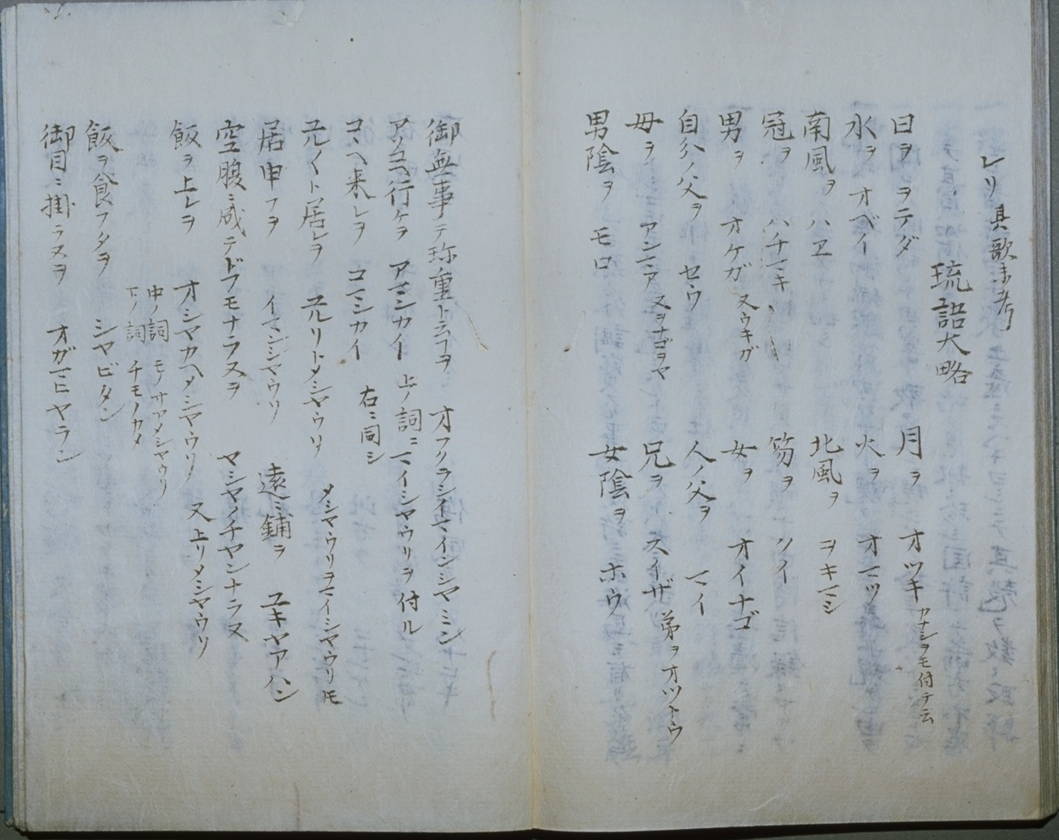 レリ 其歌末考
琉語大略
日ヲ ヲテダ 月ヲ オツキ カナシヲモ付テ云
水ヲ オベイ 火ヲ オマツ
南風ヲ ハヱ 北風ヲ ヲキマシ
冠ヲ ハチマキ 笏ヲ ソイ
男ヲ オケガ 又ウキガ 女ヲ オイナゴ
自分ノ父ヲ セウ 人ノ父ヲ マイ
母ヲ アンマア 又ヲナゴヲヤ 兄ヲ スイザ 弟ヲ オツトウ
男陰ヲ モロ 女陰ヲ ホウ
御無事テ珍重ト云フヲ オフクラシイマインシヤミン
アソコヘ行ケヲ アマンカイ 上ノ詞ニマイシヤウリヲ付ル
コヽヘ来レヲ コマンカイ 右ニ同シ
元クト居レヲ 元リトメシヤウリ メシヤウリヲマイシヤウリ𪜈
居申フヲ イマンジヤウリ 遠ニ鋪ヲ ユキヤアハン
空腹ニ成テドフモナラヌヲ マシヤノチヤンナラヌ
飯ヲ上レヲ オシヤカヘメシヤウリ 又上リメシヤウリ
中ノ詞 モノサアメシヤウリ
下ノ詞 チモノカメ
飯ヲ食フタヲ シヤビタン
御目ニ掛ラヌヲ オガマビヤラン